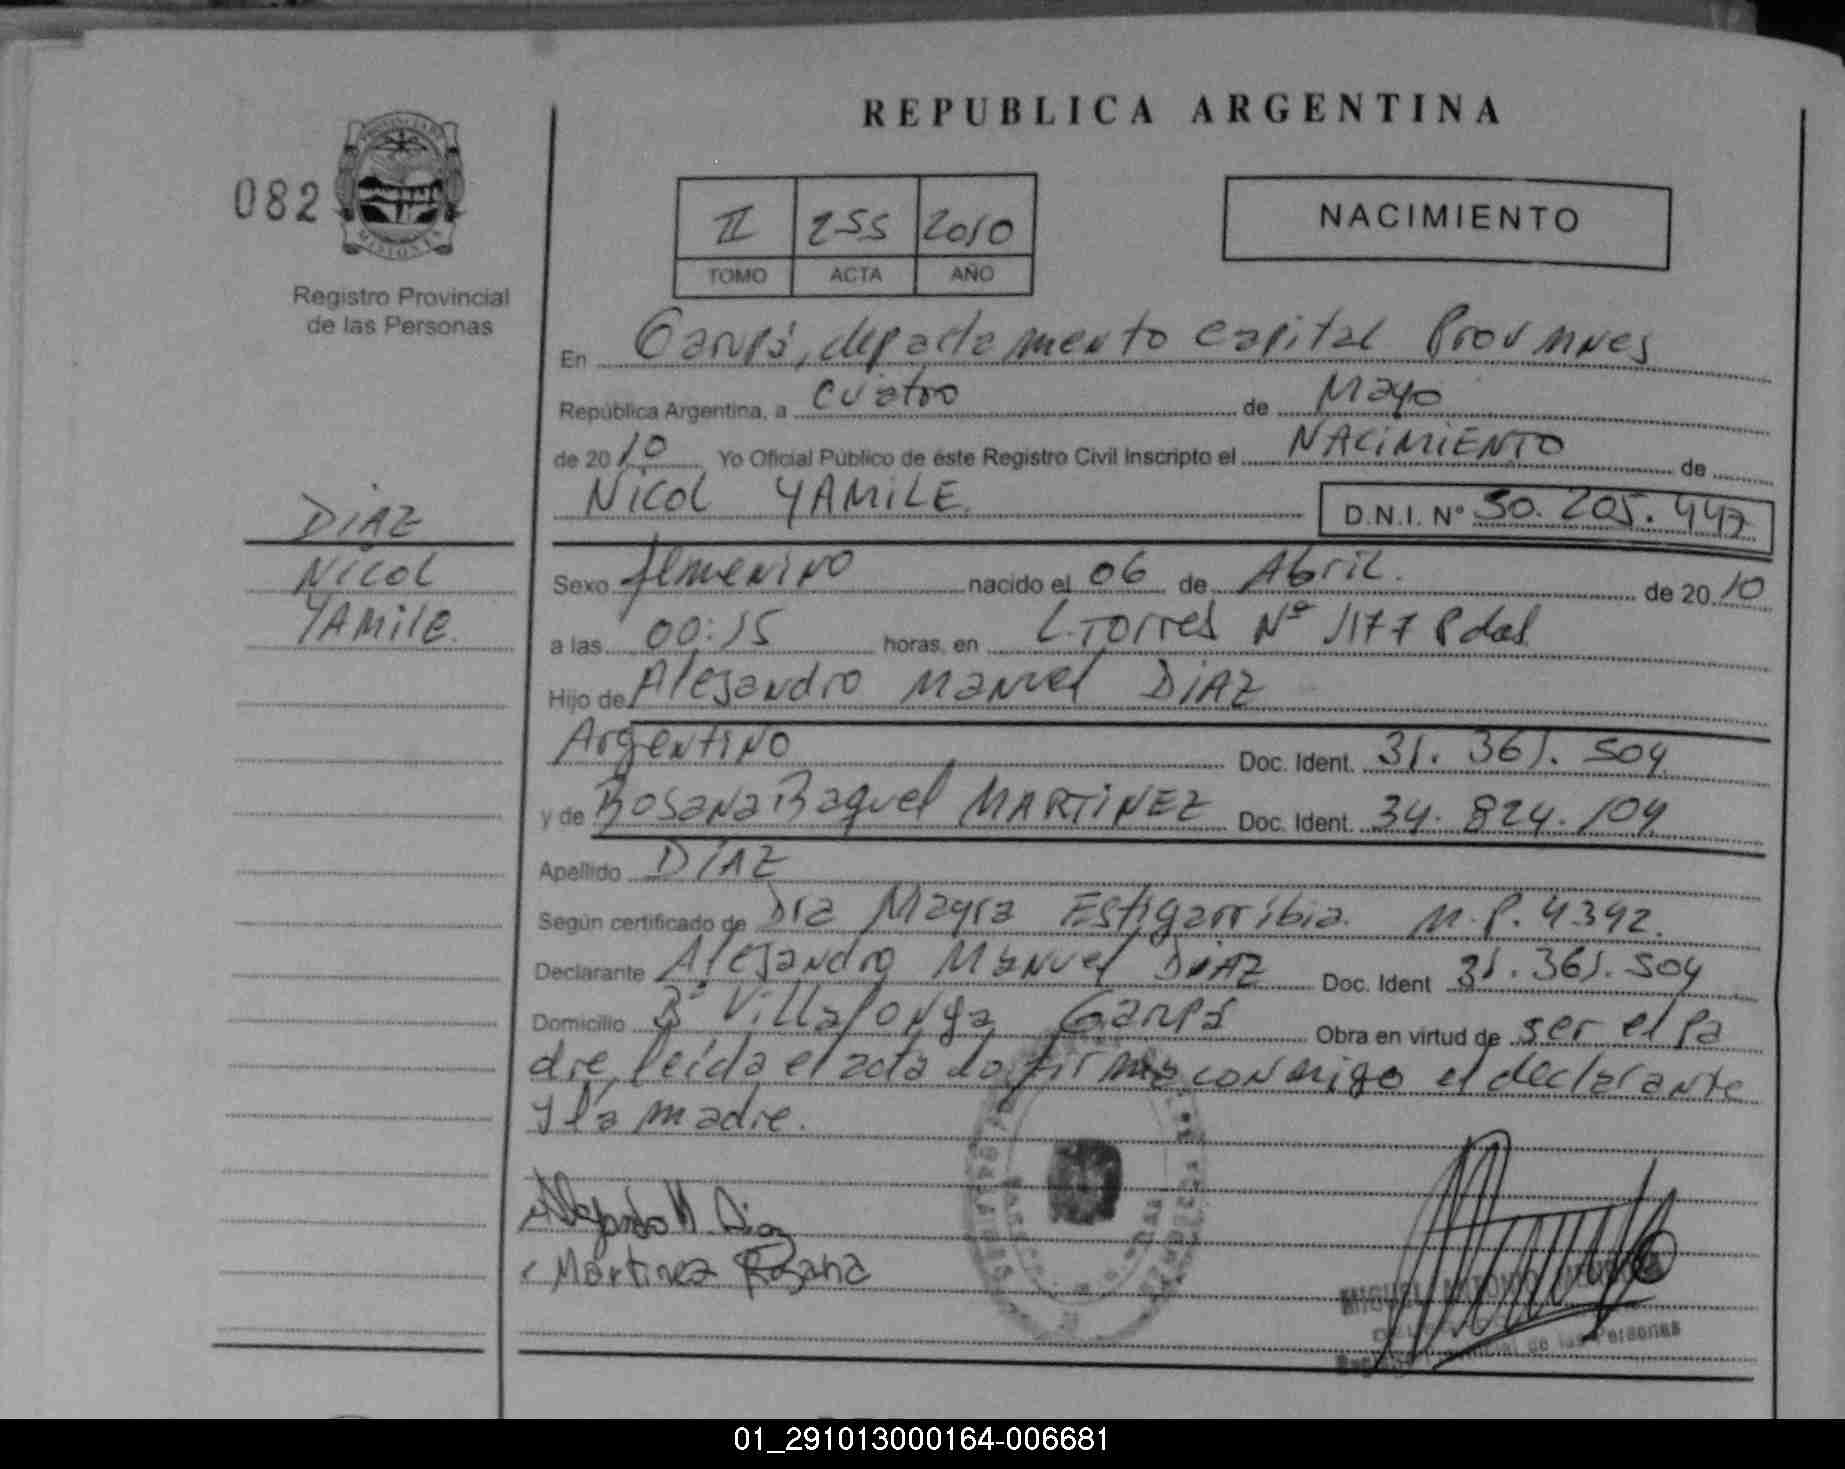 REPUBLICA ARGENTINA
082
PROVINCIA DE
MISIONES
Registro Provincial
de las Personas
II 255 2010
TOMO ACTA AÑO
NACIMIENTO
En Garupá, departamento Capital Prov Mnes
República Argentina, a cuatro de Mayo
de 2010 Yo Oficial Público de éste Registro Civil Inscripto el NACIMIENTO de
NICOL YAMILE. D.N.I. N° 50.205.447
DIAZ
NICOL
YAMILE.
Sexo femenino nacido el 06 de Abril. de 2010
a las 00:15 horas, en L. Torres Nº 1177 Pdas
Hijo de Alejandro Manuel DIAZ
Argentino Doc. Ident. 31.361.504
y de Rosana Raquel MARTINEZ Doc. Ident. 34.824.104
Apellido DIAZ
Según certificado de Dra Mayra Estigarribia. M.P. 4392.
Declarante Alejandro Manuel DIAZ Doc. Ident 31.361.504
Domicilio Bº Villalonga Garupá Obra en virtud de ser el pa
dre, leída el acta la firma conmigo el declarante
y la madre.
Alejandro M. Diaz
Martinez Rosana
MIGUEL ANTONIO
de las Personas
01_291013000164-006681